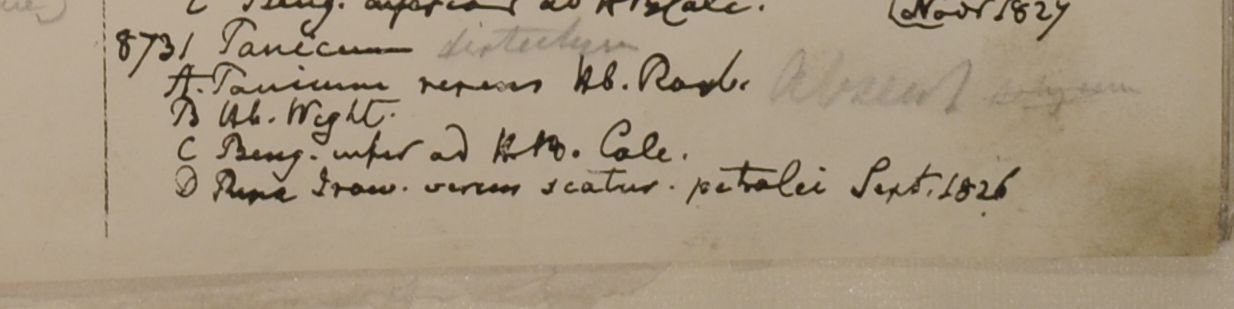 C Beng. inferiori ad H B Calc. (Novr 1827
8731 Panicum distachyum
A. Panicum repens Hb. Roxb. Absent
B Hb. Wight.
C Beng. infer ad H. B. Calc.
D Ripa Iraw. versus scatur. petrolei Sept. 1826